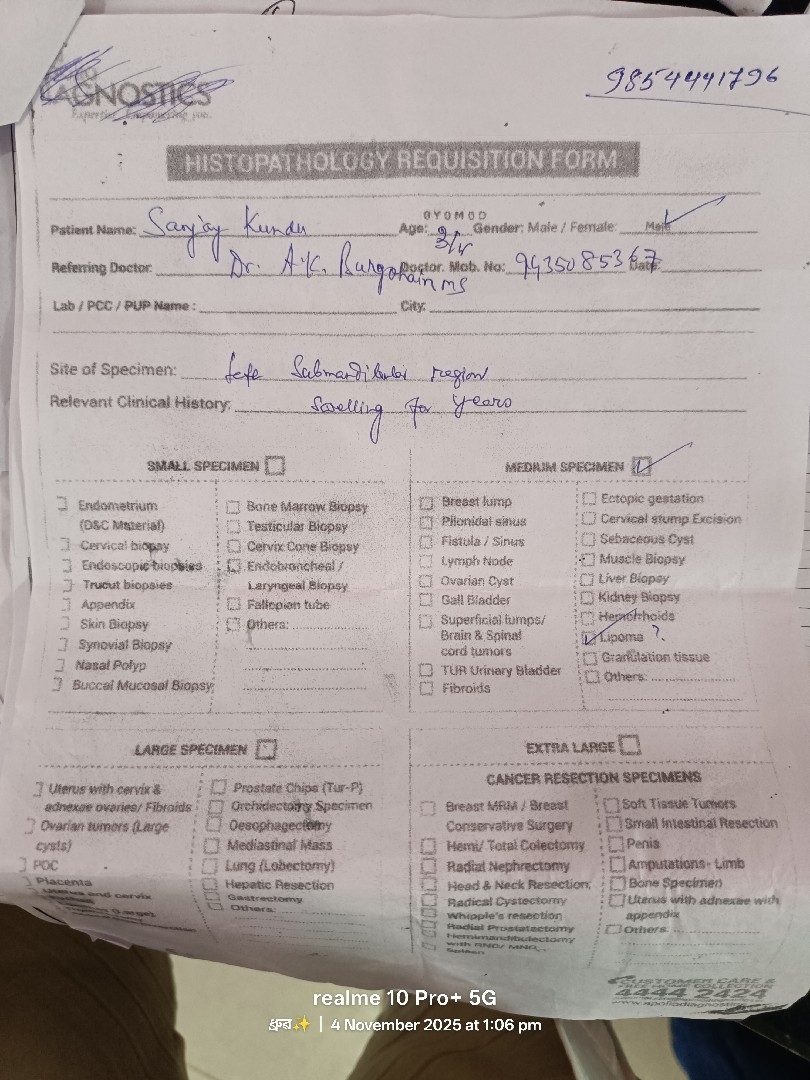 9854441796
AGNOSTICS
HISTOPATHOLOGY REQUISITION FORM
Patient Name: Sanjay Kundu Age: OYOMOD Gender: Male / Female: Male
Referring Doctor: Dr. A.K. Burgohain MS Doctor. Mob. No: 9435085367 Date:
Lab / PCC / PUP Name : City:
Site of Specimen: Left Submandibular region
Relevant Clinical History: Swelling for years
SMALL SPECIMEN
Endometrium
(D&C Material)
Cervical biopsy
Endoscopic biopsies
Trucut biopsies
Appendix
Skin Biopsy
Synovial Biopsy
Nasal Polyp
Buccal Mucosal Biopsy
Bone Marrow Biopsy
Testicular Biopsy
Cervix Cone Biopsy
Endobroncheal /
Laryngeal Biopsy
Fallopian tube
Others:
MEDIUM SPECIMEN
Breast lump
Pilonidal sinus
Fistula / Sinus
Lymph Node
Ovarian Cyst
Gall Bladder
Superficial lumps/
Brain & Spinal
cord tumors
TUR Urinary Bladder
Fibroids
Ectopic gestation
Cervical stump Excision
Sebaceous Cyst
Muscle Biopsy
Liver Biopsy
Kidney Biopsy
Hemorrhoids
Lipoma ?
Granulation tissue
Others:
LARGE SPECIMEN
Uterus with cervix &
adnexae ovaries/ Fibroids
Ovarian tumors (Large
cysts)
POC
Placenta
Uterus and cervix
Prostate Chips (Tur-P)
Orchidectomy Specimen
Oesophagectomy
Mediastinal Mass
Lung (Lobectomy)
Hepatic Resection
Gastrectomy
Others:
EXTRA LARGE
CANCER RESECTION SPECIMENS
Breast MRM / Breast
Conservative Surgery
Hemi/ Total Colectomy
Radial Nephrectomy
Head & Neck Resection,
Radical Cystectomy
Whipple's resection
Radial Prostatectomy
Hemimandibulectomy
with RND/ MND,
Spleen
Soft Tissue Tumors
Small Intestinal Resection
Penis
Amputations- Limb
Bone Specimen
Uterus with adnexae with
appendix
Others:
CUSTOMER CARE &
4444 2424
realme 10 Pro+ 5G
ধ্রুব✨ | 4 November 2025 at 1:06 pm